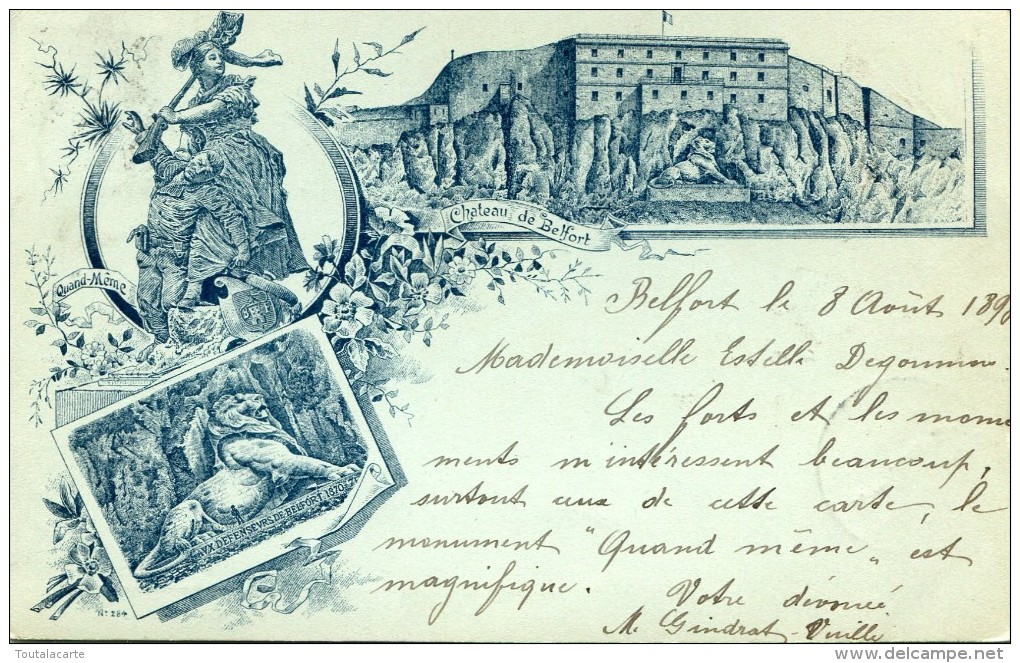 Chateau de Belfort
Quand-Même
AVX DEFENSEVRS DE BELFORT 1870
Nº 284
Belfort le 8 Août 189
Mademoiselle Estelle
Les forts et les monu
ments m'intéressent beaucoup,
surtout ceux de cette carte, le
monument "Quand même" est
magnifique.
Votre dévouée
M. Gindrat-Vuille
Toutalacarte
delcampe.net